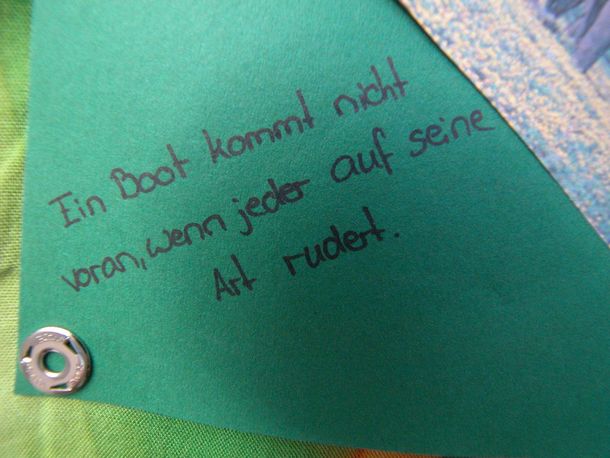 Ein Boot kommt nicht
voran, wenn jeder auf seine
Art rudert.